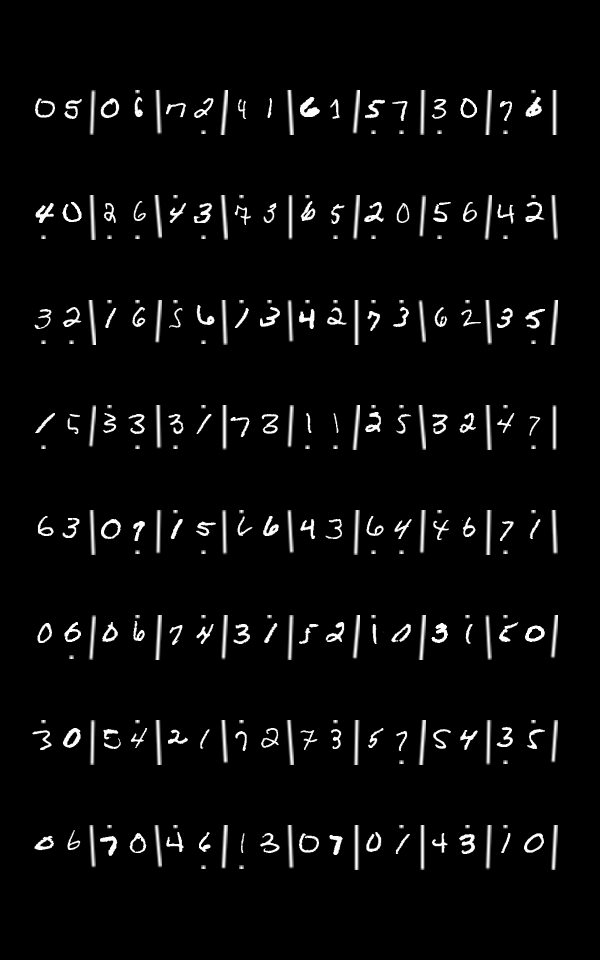 0 5 | 0 6 | 7 2 | 4 1 | 6 1 | 5 7 | 3 0 | 7 6 |
4 0 | 2 6 | 4 3 | 7 3 | 6 5 | 2 0 | 5 6 | 4 2 |
3 2 | 1 6 | 5 6 | 1 3 | 4 2 | 7 3 | 6 2 | 3 5 |
1 5 | 3 3 | 3 1 | 7 3 | 1 1 | 2 5 | 3 2 | 4 7 |
6 3 | 0 7 | 1 5 | 6 6 | 4 3 | 6 4 | 4 6 | 7 1 |
0 6 | 0 6 | 7 4 | 3 1 | 5 2 | 1 0 | 3 1 | 5 0 |
3 0 | 5 4 | 2 1 | 7 2 | 7 3 | 5 7 | 5 4 | 3 5 |
0 6 | 7 0 | 4 6 | 1 3 | 0 7 | 0 1 | 4 3 | 1 0 |